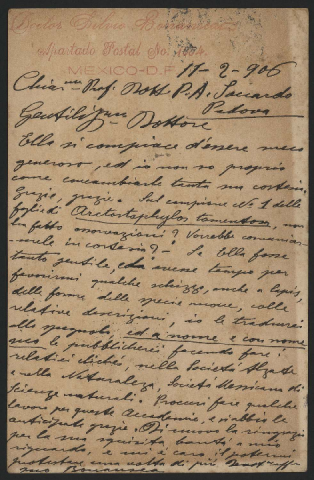 Doctor Silvio Bonansea
Apartado Postal No.
MEXICO-D.F.
17-2-906
Chiar.mo Prof. Dott. P. A. Saccardo
Padova
Gentiliss.mo Dottore
Ella si compiace d'essere meco
generoso, ed io non so proprio
come ricambiarle tanta sua cortesia.
Grazie, grazie. Sul campione No 1 delle
foglie di Arctostaphylos tomentosa, non
ha fatto osservazioni? Vorrebbe comunicar-
mele in cortesia? - Se Ella fosse
tanto gentile, ed avesse tempo per
favorirmi qualche schizzo, anche a lapis,
delle forme delle specie nuove, colle
relative descrizioni, io le tradurrei
allo spagnolo, ed a nome e con nome
suo le pubblicherei facendo fare i
relativi cliché, nella Società Alzate
e nella Naturaleza, Società Messicana di
Scienze naturali. Procuri fare qualche
lavoro per queste Accademie, e si abbia le
anticipate grazie. Di nuovo la ringrazio
per la sua squisita bontà a mio
riguardo, e mi è caro il potermi
protestare una volta di più
suo Bonansea